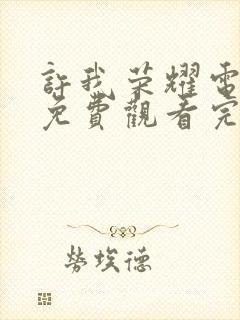 許我荣耀電
免費觀看完
勞埃德